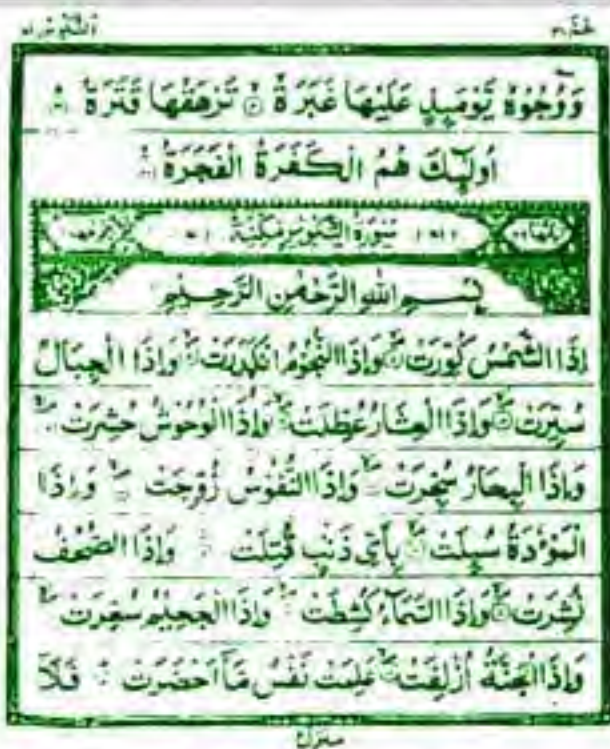 التكوير ٨١
عمّ ٣٠
وَوُجُوْهٌ يَّوْمَىِٕذٍ عَلَيْهَا غَبَرَةٌ تَرْهَقُهَا قَتَرَةٌ
أُولٰٓىِٕكَ هُمُ الْكَفَرَةُ الْفَجَرَةُ
سُوْرَةُ التَّكْوِيْرِ مَكِّيَّةٌ
بِسْمِ اللّٰهِ الرَّحْمٰنِ الرَّحِيْمِ
اِذَا الشَّمْسُ كُوِّرَتْ وَاِذَا النُّجُوْمُ انْكَدَرَتْ وَاِذَا الْجِبَالُ
سُيِّرَتْ وَاِذَا الْعِشَارُ عُطِّلَتْ وَاِذَا الْوُحُوْشُ حُشِرَتْ
وَاِذَا الْبِحَارُ سُجِّرَتْ وَاِذَا النُّفُوْسُ زُوِّجَتْ وَاِذَا
الْمَوْءٗدَةُ سُىِٕلَتْ بِاَيِّ ذَنْۢبٍ قُتِلَتْ وَاِذَا الصُّحُفُ
نُشِرَتْ وَاِذَا السَّمَآءُ كُشِطَتْ وَاِذَا الْجَحِيْمُ سُعِّرَتْ
وَاِذَا الْجَنَّةُ اُزْلِفَتْ عَلِمَتْ نَفْسٌ مَّآ اَحْضَرَتْ فَلَآ
منزل